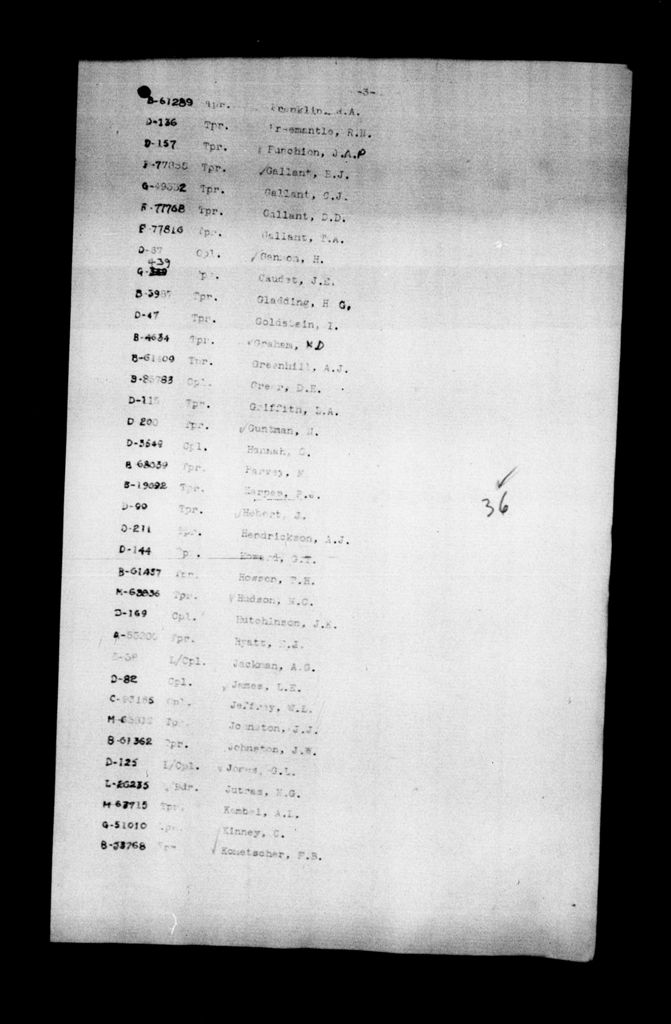 -3-
B-61289 Tpr. Franklin, .A.
D-136 Tpr. Freemantle, R.H.
D-157 Tpr. Funchion, J.A.P
Tpr. Gallant, E.J.
Tpr. Gallant, C.J.
F-77768 Tpr. Gallant, D.D.
F-77816 Tpr. Gallant, F.A.
D-67 Cpl. Ganson, H.
439
G- Tpr. Gaudet, J.E.
Tpr. Gladding, H G,
D-47 Tpr. Goldstein, I.
B-4634 Tpr. Graham, M D
B-61409 Tpr. Greenhill, A.J.
B-85783 Cpl. Greer, D.E.
D-115 Tpr. Griffith, L.A.
D 200 Tpr. Guntman, N.
D-3549 Cpl. Hannah, G.
B 63039 Tpr. Harvey,
B-19092 Tpr. Harpes,
D-99 Tpr. Hebert, J.
D-211 Tpr. Hendrickson, A.J.
D-144 Tpr. Howard, G.T.
B-61457 Tpr. Hosson, T.H.
M-63936 Tpr. Hudson, H.C.
D-169 Cpl. Hutchinson, J.K.
Tpr. Hyatt,
L/Cpl. Jackman, A.G.
D-82 Cpl. James, L.E.
Jeffrey, W.L.
Tpr. Johnston, J.J.
B-61362 Tpr. Johnston, J.W.
D-125 L/Cpl. Jones, G.L.
Jutras, N.G.
M-63715 Tpr. Kembel, A.L.
G-51010 Tpr. Kinney, C.
B-33768 Tpr Kometscher, F.B.
36